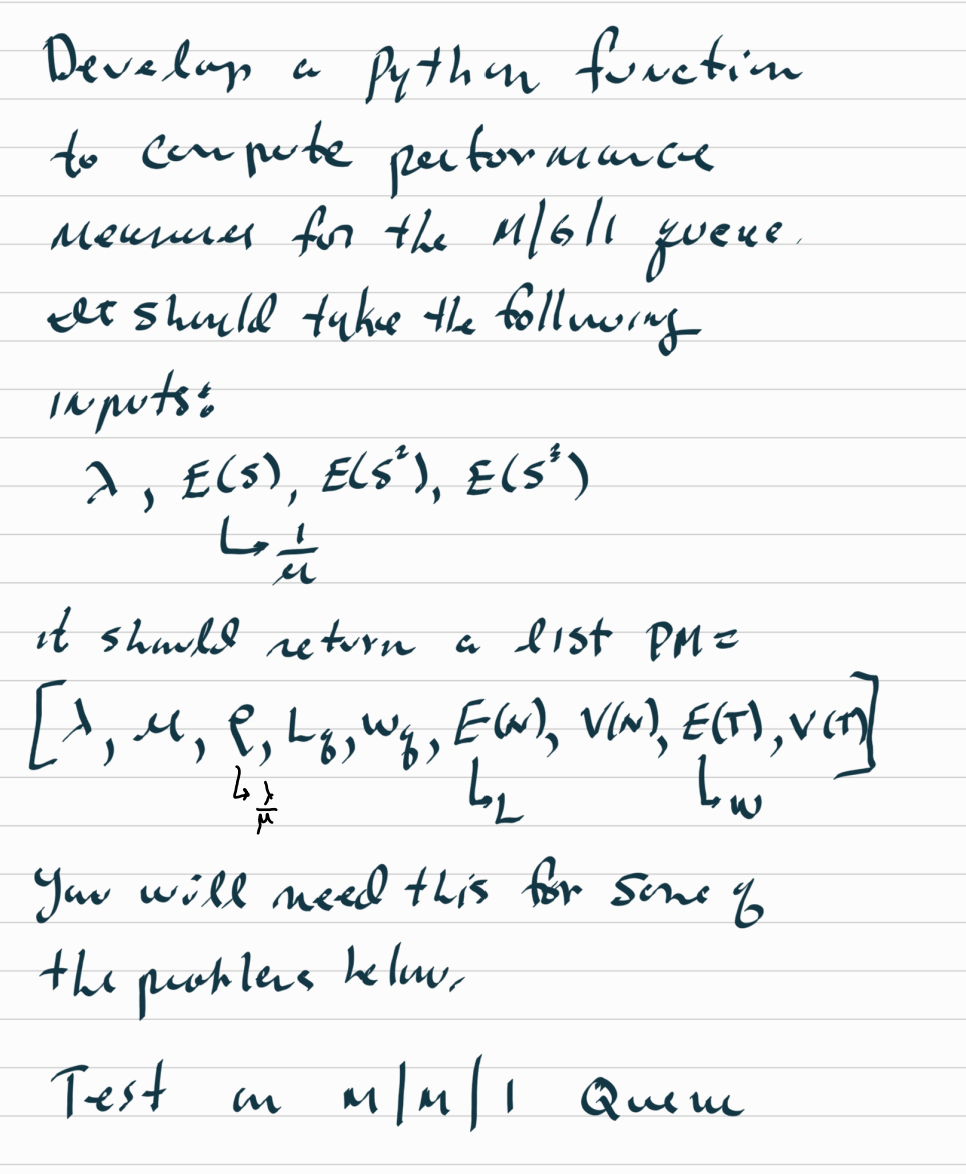 Develop a Python function
to compute performance
measures for the M/G/1 queue.
It should take the following
inputs:
λ, E(S), E(S²), E(S³)
↳ 1/μ
it should return a list PM =
[λ, μ, ρ, Lq, Wq, E(N), V(N), E(T), V(T)]
↳ λ/μ ↳ L ↳ W
You will need this for some of
the problems below.
Test on M/M/1 Queue